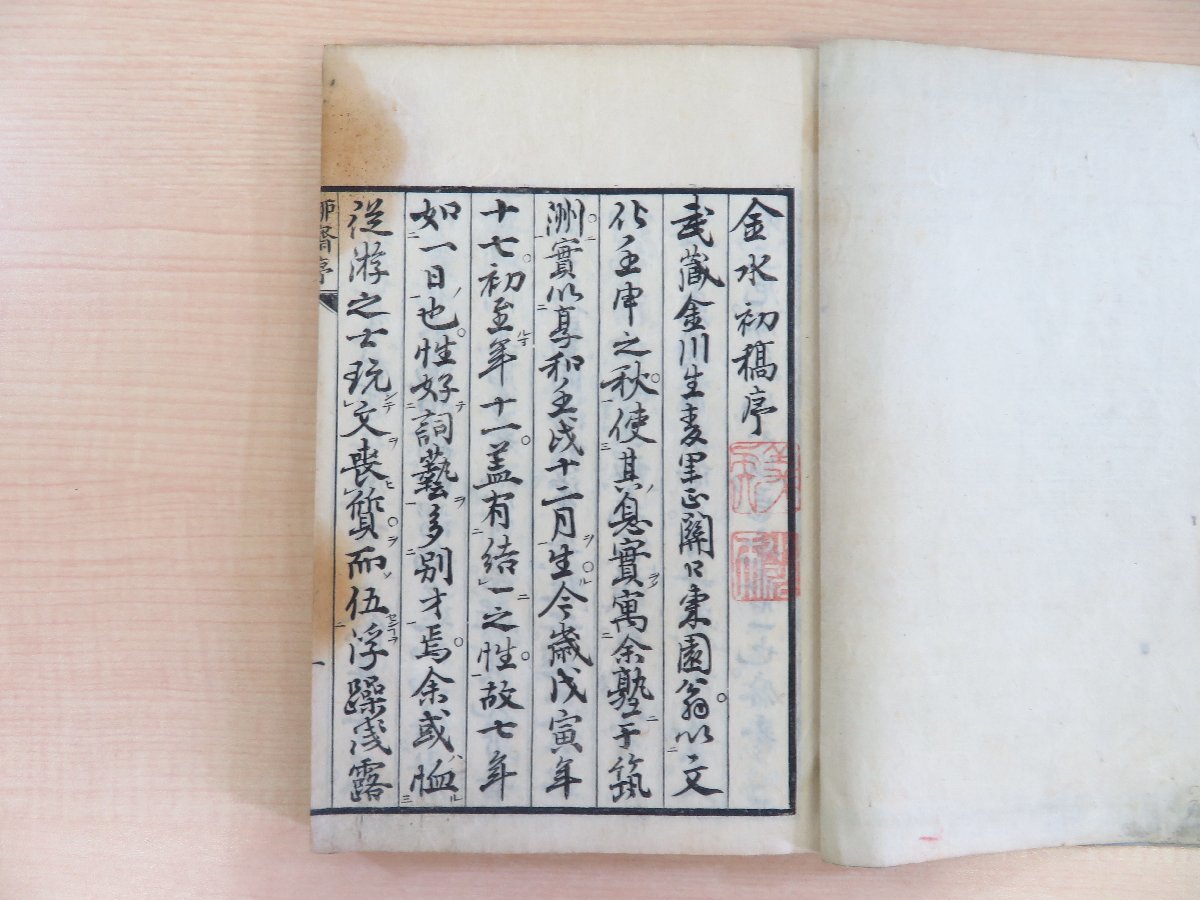 金水初稿序
武藏金川生麥里正關口東園翁以文
化壬申之秋使其息實寓余塾于筑
洲實以享和壬戌十二月生今歲戊寅年
十七初至年十一盖有結一之性故七年
如一日也性好詞藝多別才焉余或恤
從游之士玩文喪質而伍浮躁淺露
齋序
一